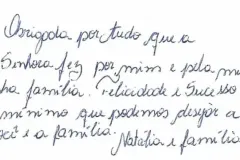 Obrigada por tudo que a
Senhora fez por mim e pela mi
nha família. Felicidade e Sucesso
mínimo que podemos desejar a
cê e a família. Natália e família